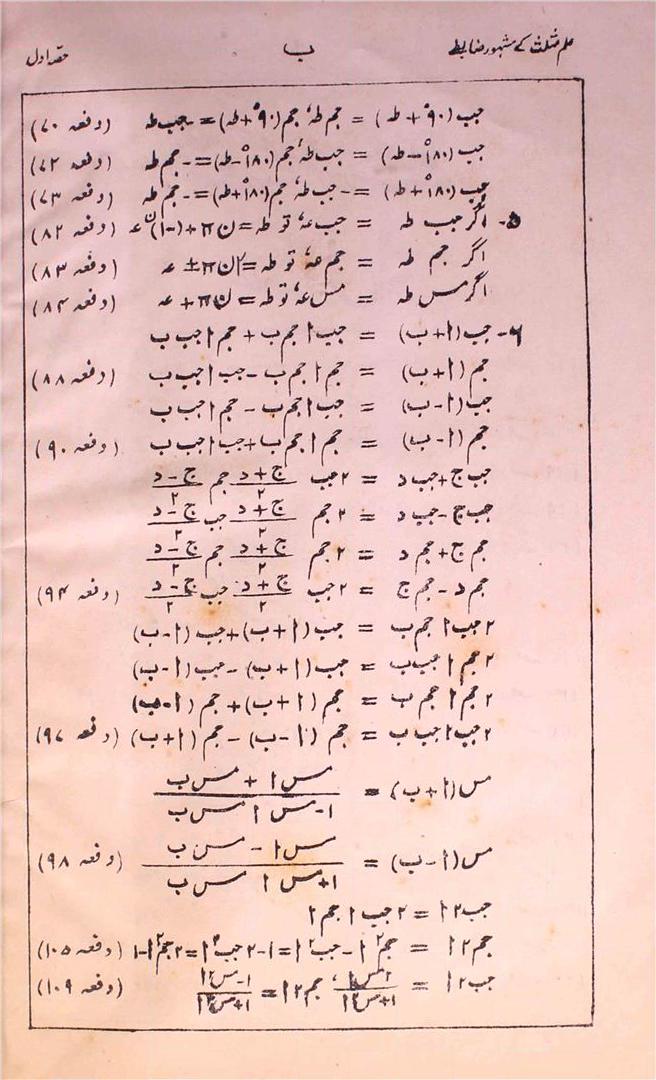 علم مثلث کے مشہور ضابطے ب حصہ اول
جب (۹۰° + طہ) = جم طہ، جم (۹۰° + طہ) = - جب طہ (دفعہ ۷۰)
جب (۱۸۰° - طہ) = جب طہ، جم (۱۸۰° - طہ) = - جم طہ (دفعہ ۷۲)
جب (۱۸۰° + طہ) = - جب طہ، جم (۱۸۰° + طہ) = - جم طہ (دفعہ ۷۳)
۵- اگر جب طہ = جب عہ، تو طہ = ن π + (-۱)^ن عہ (دفعہ ۸۲)
اگر جم طہ = جم عہ، تو طہ = ۲ ن π ± عہ (دفعہ ۸۳)
اگر مس طہ = مس عہ، تو طہ = ن π + عہ (دفعہ ۸۴)
۶- جب (ا + ب) = جب ا جم ب + جم ا جب ب
جم (ا + ب) = جم ا جم ب - جب ا جب ب (دفعہ ۸۸)
جب (ا - ب) = جب ا جم ب - جم ا جب ب
جم (ا - ب) = جم ا جم ب + جب ا جب ب (دفعہ ۹۰)
جب ج + جب د = ۲ جب (ج + د)/۲ جم (ج - د)/۲
جب ج - جب د = ۲ جم (ج + د)/۲ جب (ج - د)/۲
جم ج + جم د = ۲ جم (ج + د)/۲ جم (ج - د)/۲
جم د - جم ج = ۲ جب (ج + د)/۲ جب (ج - د)/۲ (دفعہ ۹۴)
۲ جب ا جم ب = جب (ا + ب) + جب (ا - ب)
۲ جم ا جب ب = جب (ا + ب) - جب (ا - ب)
۲ جم ا جم ب = جم (ا + ب) + جم (ا - ب)
۲ جب ا جب ب = جم (ا - ب) - جم (ا + ب) (دفعہ ۹۷)
مس (ا + ب) = (مس ا + مس ب)/(۱ - مس ا مس ب)
مس (ا - ب) = (مس ا - مس ب)/(۱ + مس ا مس ب) (دفعہ ۹۸)
جب ۲ ا = ۲ جب ا جم ا
جم ۲ ا = جم² ا - جب² ا = ۱ - ۲ جب² ا = ۲ جم² ا - ۱ (دفعہ ۱۰۵)
جب ۲ ا = ۲ مس ا/(۱ + مس² ا)، جم ۲ ا = (۱ - مس² ا)/(۱ + مس² ا) (دفعہ ۱۰۹)